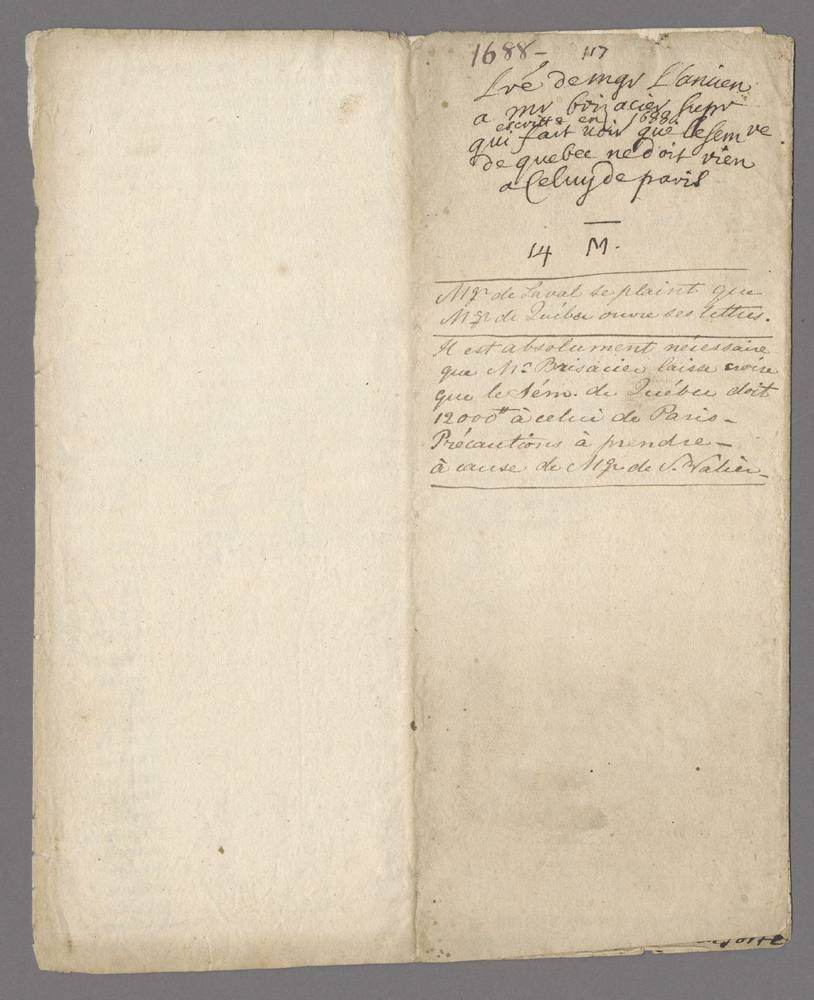 1688 - 117
Lré de mgr L'ancien
a mr brizacier supr
escritte en 1688.
qui fait uoir que le sem re
de quebec ne doit rien
a Celuy de paris
14 M.
Mgr. de Laval se plaint que
Mgr. de Québec ouvre ses lettres.
Il est absolument nécessaire
que Mr. Brisacier laisse croire
que le Sém. de Québec doit
12000# à celui de Paris -
Précautions à prendre -
à cause de Mgr de St. Valier -